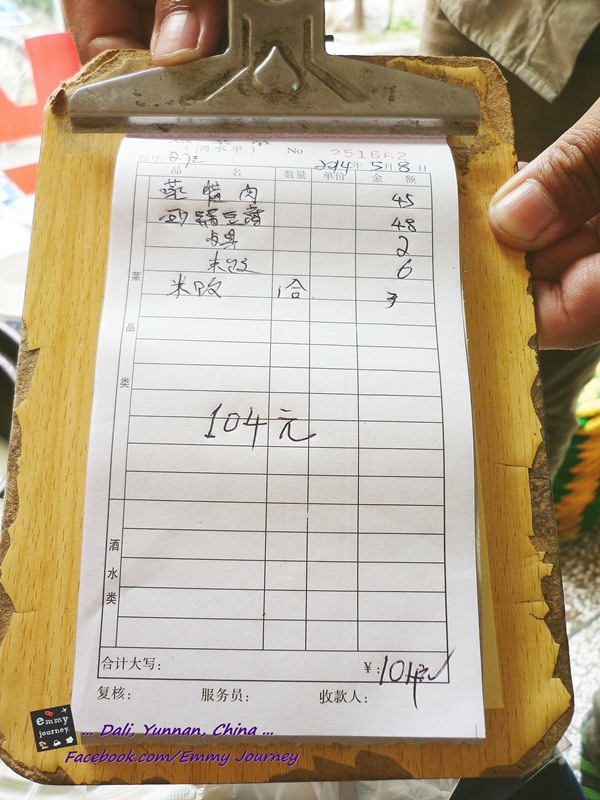 （酒水单） No 251662
2014年 5月 8日
品 名 数量 单价 金 额
蒸 腊 肉 45
砂锅豆腐 48
2
米饭 6
米饭 1合 3
菜 品 类
104元
酒 水 类
合计大写： ￥：104元
复核： 服务员： 收款人：
emmy journey.
... Dali, Yunnan, China ...
Facebook.com/Emmy Journey